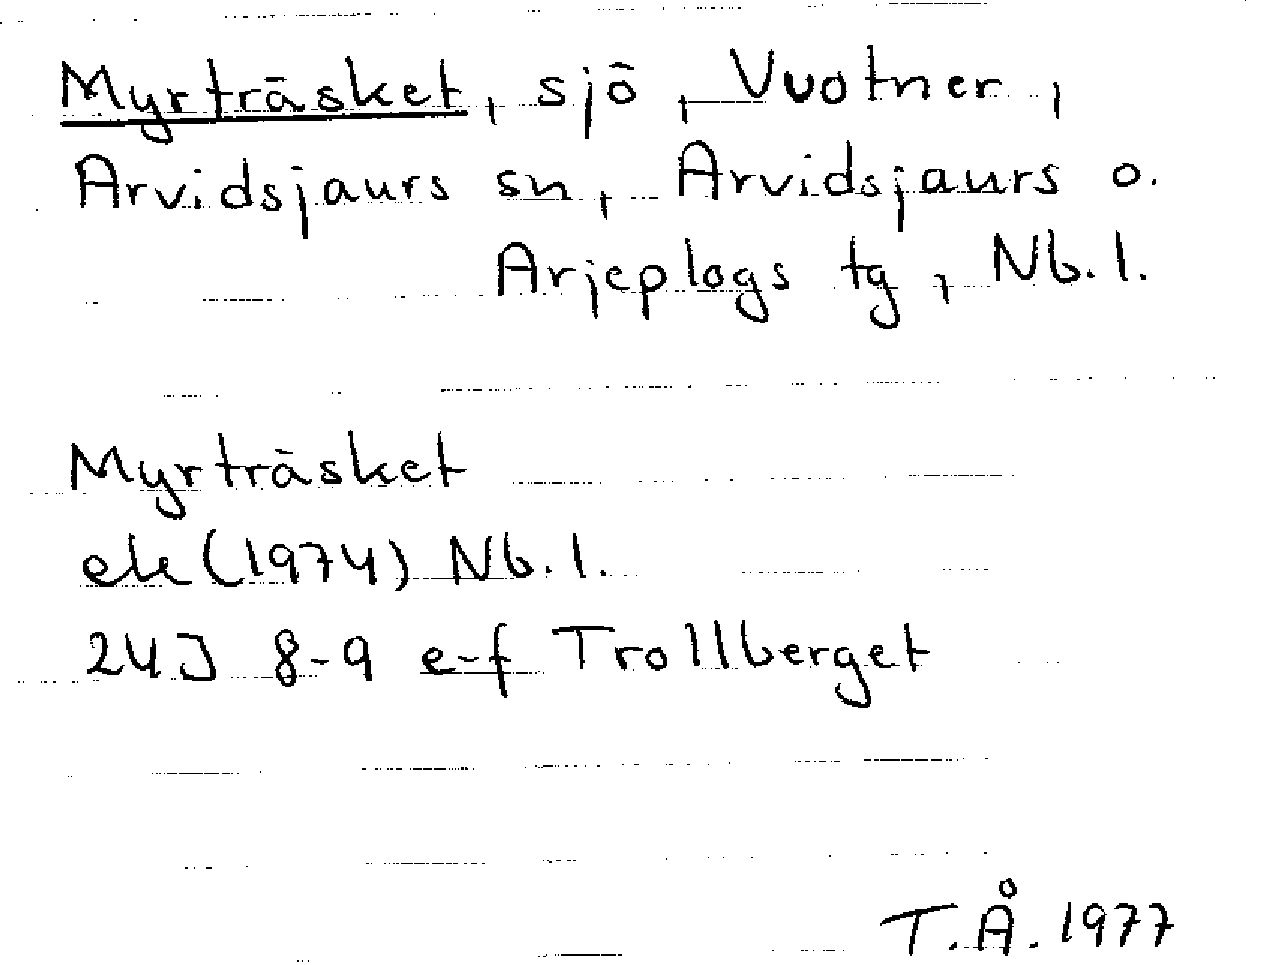 Myrträsket, sjö, Vuotner,
Arvidsjaurs sn, Arvidsjaurs o.
Arjeplogs tg, Nb. l.
Myrträsket
ek (1974) Nb. l.
24J 8-9 e-f Trollberget
T.Å. 1977